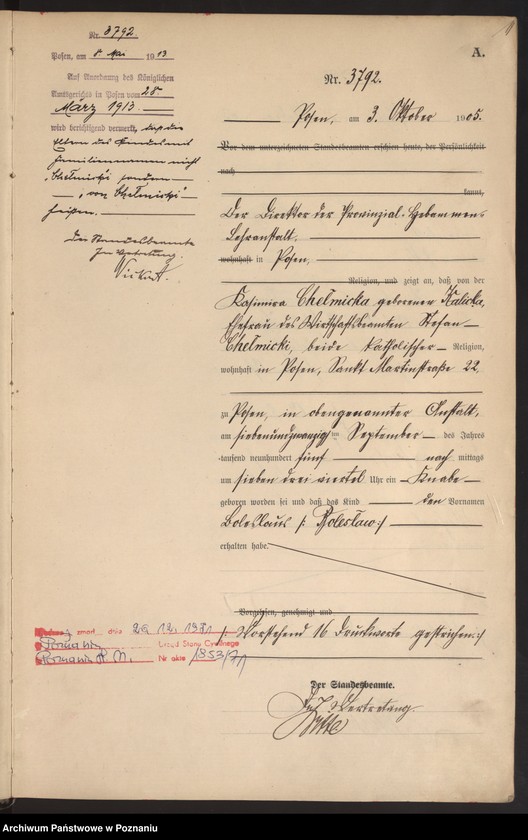 Nr. 3792.
Posen, am 8. Mai 1913.
Auf Anordnung des Königlichen
Amtsgerichts in Posen vom 28.
März 1913.
wird berichtigend vermerkt, daß die
Eltern des Kindes mit
Familiennamen nicht
"Chełmicki" sondern
"von Chełmicki"
heißen.
Der Standesbeamte
In Vertretung.
A.
Nr. 3792.
Posen, am 3. Oktober 1905.
Vor dem unterzeichneten Standesbeamten erschien heute, der Persönlichkeit
nach
kannt,
Der Direktor der Provinzial-Hebammen-
Lehranstalt,
wohnhaft in Posen,
Religion, und zeigt an, daß von der
Kasimira Chełmicka geborener Kalicka,
Ehefrau des Wirthschaftsbeamten Stefan
Chełmicki, beide katholischer Religion,
wohnhaft in Posen, Sankt Martinstraße 22,
zu Posen, in obengenannter Anstalt,
am siebenundzwanzigsten September des Jahres
tausend neunhundert fünf nach mittags
um sieben drei viertel Uhr ein Knabe
geboren worden sei und daß das Kind den Vornamen
Boleslaus /: Bolesław :/
erhalten habe.
Vorgelesen, genehmigt und
/: Vorstehend 16 Druckworte gestrichen :/
zmarł dnia 29.12.1971
Urząd Stanu Cywilnego
Poznań N. M. Nr aktu 1853/71
Der Standesbeamte.
In Vertretung.
Archiwum Państwowe w Poznaniu